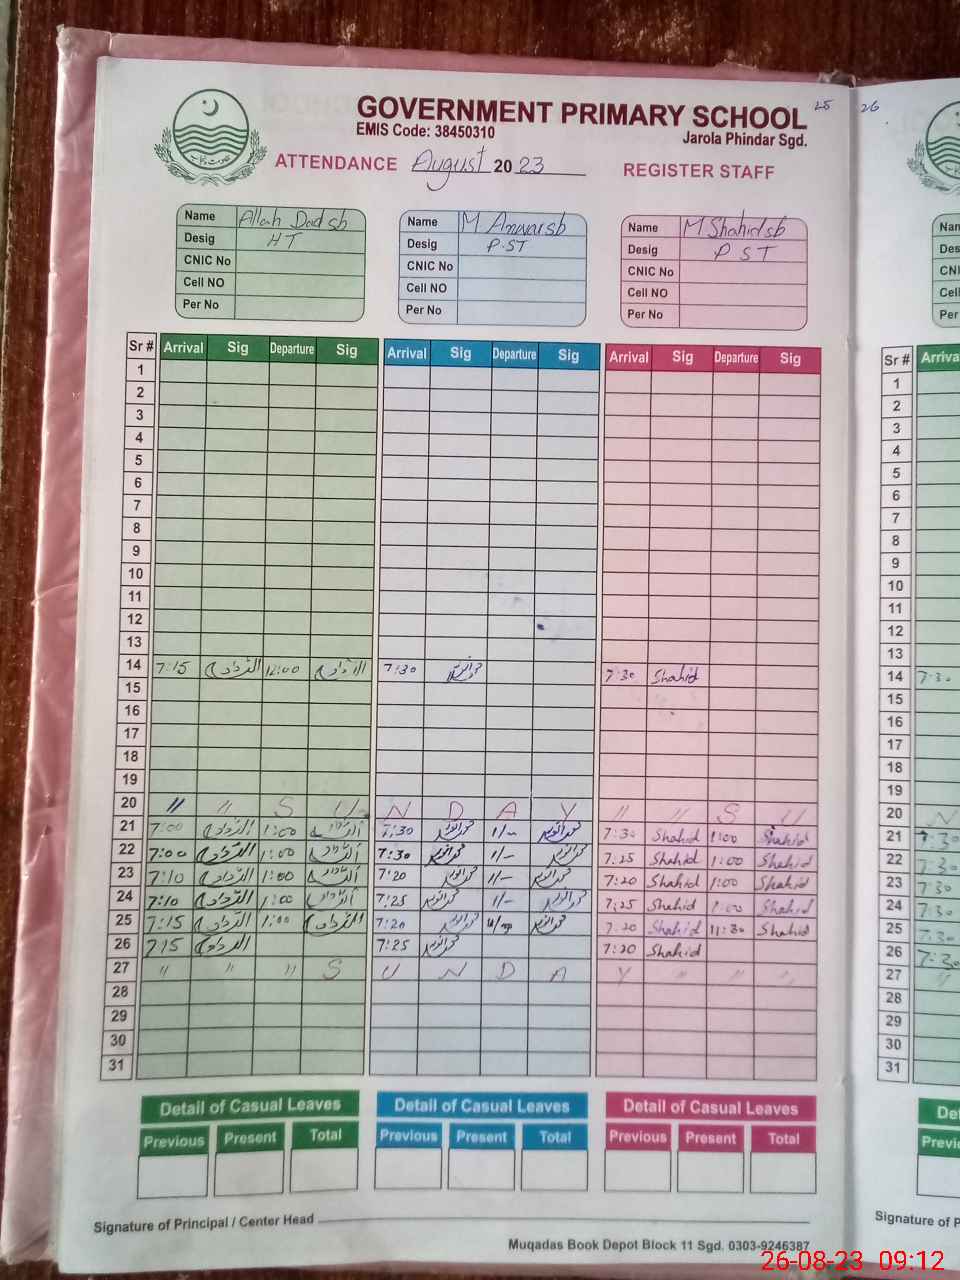 25 26
GOVERNMENT PRIMARY SCHOOL
EMIS Code: 38450310
Jarola Phindar Sgd.
ATTENDANCE August 2023 REGISTER STAFF
Name Allah Dad sb
Desig HT
CNIC No
Cell NO
Per No
Name M Anwar sb
Desig P.ST
CNIC No
Cell NO
Per No
Name M Shahid sb
Desig P S T
CNIC No
Cell NO
Per No
Sr # Arrival Sig Departure Sig Arrival Sig Departure Sig Arrival Sig Departure Sig
1
2
3
4
5
6
7
8
9
10
11
12
13
14 7:15 12:00 7:30 7:30 Shahid
15
16
17
18
19
20 " " S U N D A Y " " S U
21 7:00 1:00 7:30 1/- 7:30 Shahid 1:00 Shahid
22 7:00 1:00 7:30 1/- 7:25 Shahid 1:00 Shahid
23 7:10 1:00 7:20 1/- 7:20 Shahid 1:00 Shahid
24 7:10 1:00 7:25 1/- 7:25 Shahid 1:00 Shahid
25 7:15 1:00 7:20 7:20 Shahid 11:30 Shahid
26 7:15 7:25 7:20 Shahid
27 " " " S U N D A Y " " "
28
29
30
31
Detail of Casual Leaves
Previous Present Total
Detail of Casual Leaves
Previous Present Total
Detail of Casual Leaves
Previous Present Total
Signature of Principal / Center Head
Muqadas Book Depot Block 11 Sgd. 0303-9246387
Sr #
1
2
3
4
5
6
7
8
9
10
11
12
13
14 7:30
15
16
17
18
19
20 N
21 7:30
22 7:30
23 7:30
24 7:30
25 7:30
26 7:30
27 "
28
29
30
31
Signature of P
26-08-23 09:12